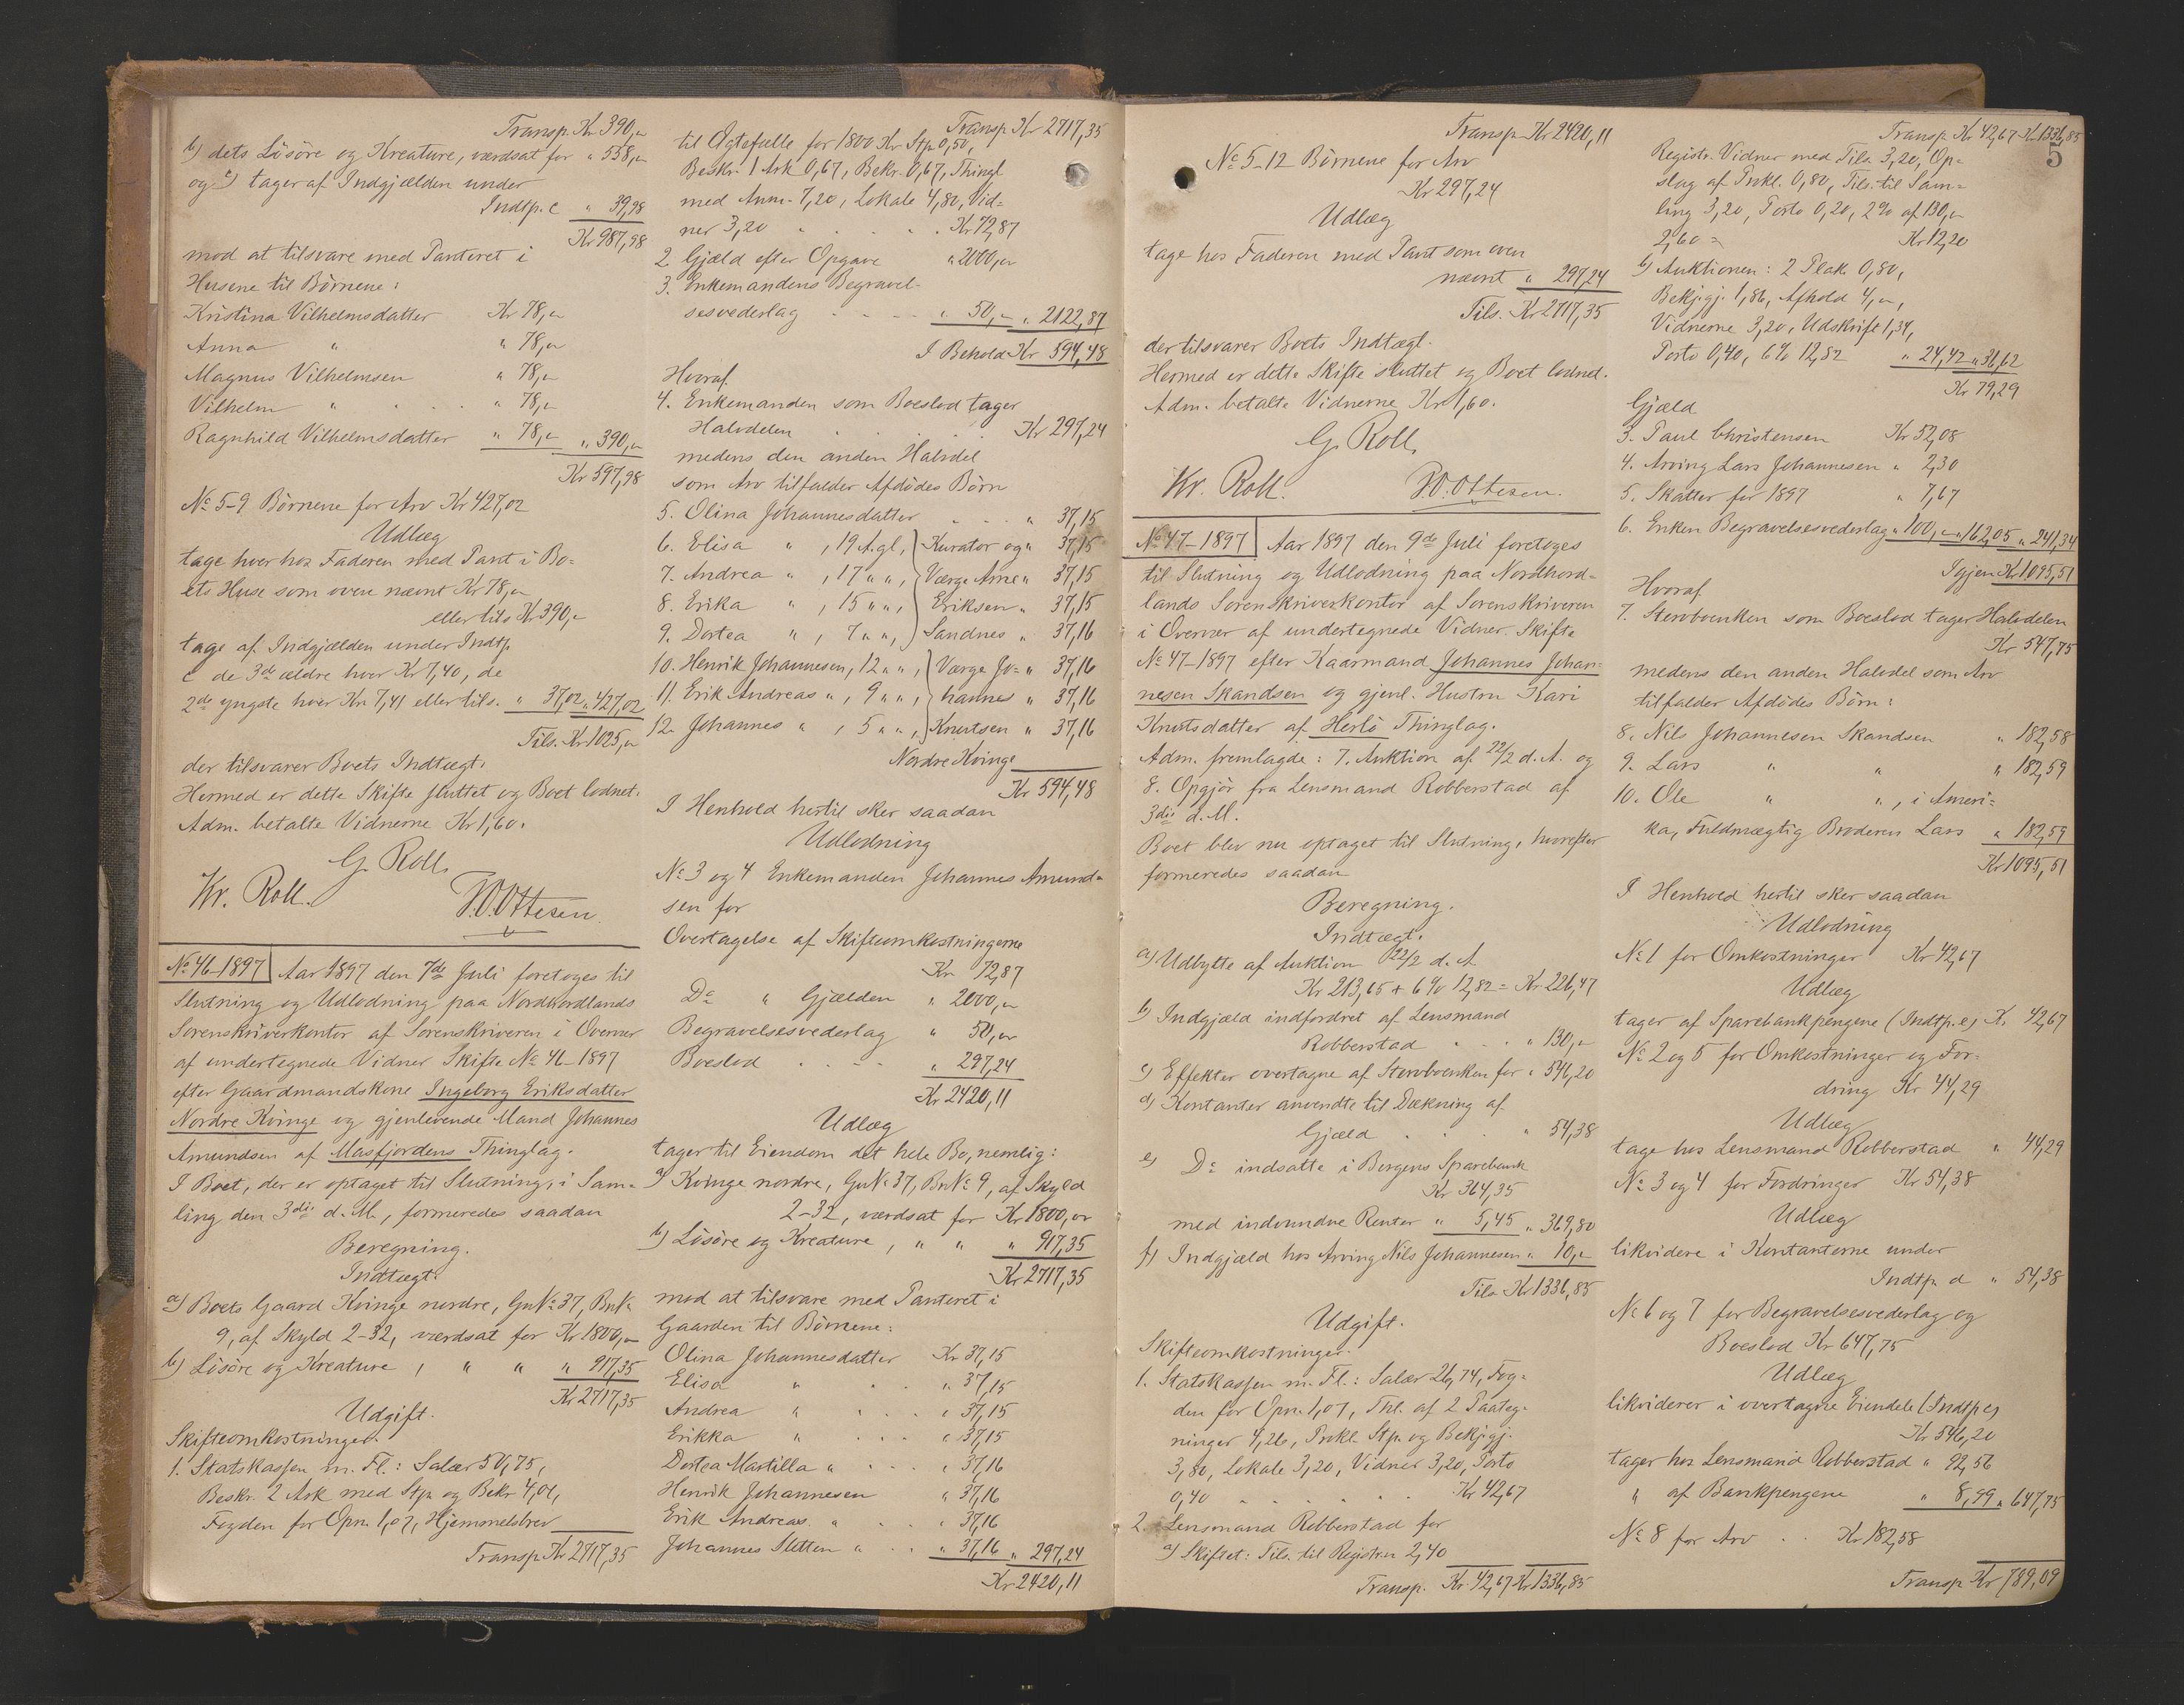 Transp. Kr 390,„
b) dets Lösöre og Kreature, værdsat for „ 558,„
og c) tager af Indgjælden under
Indtp. c „ 39,98
Kr 987,98
mod at tilsvare med Panteret i
Husene til Börnene:
Kristina Vilhelmsdatter Kr 78,„
Anna „ „ 78,„
Magnus Vilhelmsen „ 78,„
Vilhelm „ . . . „ 78,„
Ragnhild Vilhelmsdatter „ 78,„ „ 390,„
Kr 597,98
No 5-9 Börnene for Arv Kr 427,02
Udlæg
tage hver hos Faderen med Pant i Bo-
ets Huse som oven nævnt Kr 78,„
eller tils. Kr 390,„
tage af Indgjælden under Indtp.
c de 3de ældre hver Kr 7,40, de
2de yngste hver Kr 7,41 eller tils. „ 37,02 „ 427,02
Tils. Kr 1025,„
der tilsvarer Boets Indtægt.
Hermed er dette Skifte sluttet og Boet lodnet.
Adm. betalte Vidnerne Kr 1,60.
G. Roll.
Kr. Roll. J.O. Ottesen.
No 46-1897 Aar 1897 den 7de Juli foretoges til
Slutning og Udlodning paa Nordhordlands
Sorenskriverkontor af Sorenskriveren i Overvær
af undertegnede Vidner Skifte No 46-1897
efter Gaardmandskone Ingeborg Eriksdatter
Nordre Kvinge og gjenlevende Mand Johannes
Amundsen af Masfjordens Thinglag.
I Boet, der er optaget til Slutning, i Sam-
ling den 3die d. M., formeredes saadan
Beregning.
Indtægt.
a) Boets Gaard Kvinge nordre, GnNo 37, BnNo
9, af Skyld 2-32, værdsat for Kr 1800,„
b) Lösöre og Kreature, „ „ „ 917,35
Kr 2717,35
Udgift.
Skifteomkostninger.
1. Statskassen m. Fl.: Salær 50,75,
Beskr. 2 Ark med Stp. og Bekr. 4,01,
Fogden for Opn. 1,07, Hjemmelsbrev
Transp. Kr 2717,35
Transp. Kr 2717,35
til Ægtefælle for 1800 Kr Stp. 0,50,
Beskr. 1 Ark 0,67, Bekr. 0,67, Thingl.
med Anm. 7,20, Lokale 4,80, Vid-
ner 3,20 . . . . Kr 72,87
2. Gjæld efter Opgave „ 2000,„
3. Enkemandens Begravel-
sesvederlag . . . . „ 50,„ „ 2122,87
I Behold Kr 594,48
Hvoraf
4. Enkemanden som Boeslod tager
Halvdelen . . . . Kr 297,24
medens den anden Halvdel
som Arv tilfalder Afdödes Börn
5. Olina Johannesdatter . . . „ 37,15
6. Elisa „ , 19 A. gl., Kurator og „ 37,15
7. Andrea „ , 17 „ „ , Værge Arne „ 37,15
8. Erika „ , 15 „ „ , Eriksen „ 37,15
9. Dortea „ , 7 „ „ , Sandnes „ 37,16
10. Henrik Johannesen, 12 „ „ , Værge Jo- „ 37,16
11. Erik Andreas „ , 9 „ „ , hannes „ 37,16
12. Johannes „ , 5 „ „ , Knutsen „ 37,16
Nordre Kvinge
Kr 594,48
I Henhold hertil sker saadan
Udlodning
No 3 og 4 Enkemanden Johannes Amund-
sen for
Overtagelse af Skifteomkostningerne
Kr 72,87
Do „ Gjælden „ 2000,„
Begravelsesvederlag „ 50,„
Boeslod . . . . „ 297,24
Kr 2420,11
Udlæg
tager til Eiendom det hele Bo, nemlig:
a) Kvinge nordre, GnNo 37, BnNo 9, af Skyld
2-32, værdsat for Kr 1800,„
b) Lösöre og Kreature, „ „ „ 917,35
Kr 2717,35
mod at tilsvare med Panteret i
Gaarden til Börnene:
Olina Johannesdatter Kr 37,15
Elisa „ . . „ 37,15
Andrea „ . . . „ 37,15
Erikka „ . . . „ 37,15
Dortea Martilla „ . . . „ 37,16
Henrik Johannesen „ 37,16
Erik Andreas „ . . „ 37,16
Johannes Sletten „ . . „ 37,16 „ 297,24
Kr 2420,11
Transp. Kr 2420,11
No 5-12 Börnene for Arv
Kr 297,24
Udlæg
tage hos Faderen med Pant som oven
nævnt „ 297,24
Tils. Kr 2717,35
der tilsvarer Boets Indtægt.
Hermed er dette Skifte sluttet og Boet lodnet.
Adm. betalte Vidnerne Kr 1,60.
G. Roll.
Kr. Roll. J.O. Ottesen.
No 47-1897 Aar 1897 den 9de Juli foretoges
til Slutning og Udlodning paa Nordhord-
lands Sorenskriverkontor af Sorenskriveren
i Overvær af undertegnede Vidner Skifte
No 47-1897 efter Kaarmand Johannes Johan-
nesen Skandsen og gjenl. Hustru Kari
Knutsdatter af Herlö Thinglag.
Adm. fremlagde: 7. Auktion af 22/2 d. A. og
8. Opgjör fra Lensmand Robberstad af
3die d. M.
Boet blev nu optaget til Slutning, hvorefter
formeredes saadan
Beregning.
Indtægt.
a) Udbytte af Auktion 22/2 d. A.
Kr 213,65 + 6% 12,82 = Kr 226,47
b) Indgjæld indfordret af Lensmand
Robberstad . . . „ 130,„
c) Effekter overtagne af Stervboenken for „ 546,20
d) Kontanter anvendte til Dækning af
Gjæld . . . „ 54,38
e) Do indsatte i Bergens Sparebank
Kr 364,35
med indvundne Renter „ 5,45 „ 369,80
f) Indgjæld hos Arving Nils Johannesen „ 10,„
Tils. Kr 1336,85
Udgift.
Skifteomkostninger.
1. Statskassen m. Fl.: Salær 26,74, Fog-
den for Opn. 1,07, Thl. af 2 Paateg-
ninger 4,26, Prokl. Stp. og Bekjgj.
3,80, Lokale 3,20, Vidner 3,20, Porto
0,40 . . . . . Kr 42,67
2. Lensmand Robberstad for
a) Skiftet: Tils. til Registr.n 2,40
Transp. Kr 42,67 Kr 1336,85
5
Transp. Kr 42,67 Kr 1336,85
Registr. Vidner med Tils. 3,20, Op-
slag af Prokl. 0,80, Tils. til Sam-
ling 3,20, Porto 0,20, 2% af 130,„
2,60 = Kr 12,20
b) Auktionen: 2 Plak. 0,80,
Bekjgj. 1,86, Afhold 4,„,
Vidnerne 3,20, Udskrift 1,34,
Porto 0,40, 6% 12,82 „ 24,42 „ 36,62
Kr 79,29
Gjæld
3. Paul Christensen Kr 52,08
4. Arving Lars Johannesen „ 2,30
5. Skatter for 1897 „ 7,67
6. Enken Begravelsesvederlag „ 100,„ „ 162,05 „ 241,34
Igjen Kr 1095,51
Hvoraf
7. Stervboenken som Boeslod tager Halvdelen
Kr 547,75
medens den anden Halvdel som Arv
tilfalder Afdödes Börn:
8. Nils Johannesen Skandsen „ 182,58
9. Lars „ „ „ 182,59
10. Ole „ „ , i Ameri-
ka, Fuldmægtig Broderen Lars „ 182,59
Kr 1095,51
I Henhold hertil sker saadan
Udlodning
No 1 for Omkostninger Kr 42,67
Udlæg
tager af Sparebankpengene (Indtp. e) Kr. 42,67
No 2 og 5 for Omkostninger og For-
dring Kr 44,29
Udlæg
tage hos Lensmand Robberstad „ 44,29
No 3 og 4 for Fordringer Kr 54,38
Udlæg
likvidere i Kontanterne under
Indtp. d „ 54,38
No 6 og 7 for Begravelsesvederlag og
Boeslod Kr 647,75
Udlæg
likviderer i overtagne Eiendele (Indtp c)
Kr 546,20
tager hos Lensmand Robberstad „ 92,56
„ af Bankpengene „ 8,99 „ 647,75
No 8 for Arv . . Kr 182,58
Transp. Kr 789,09